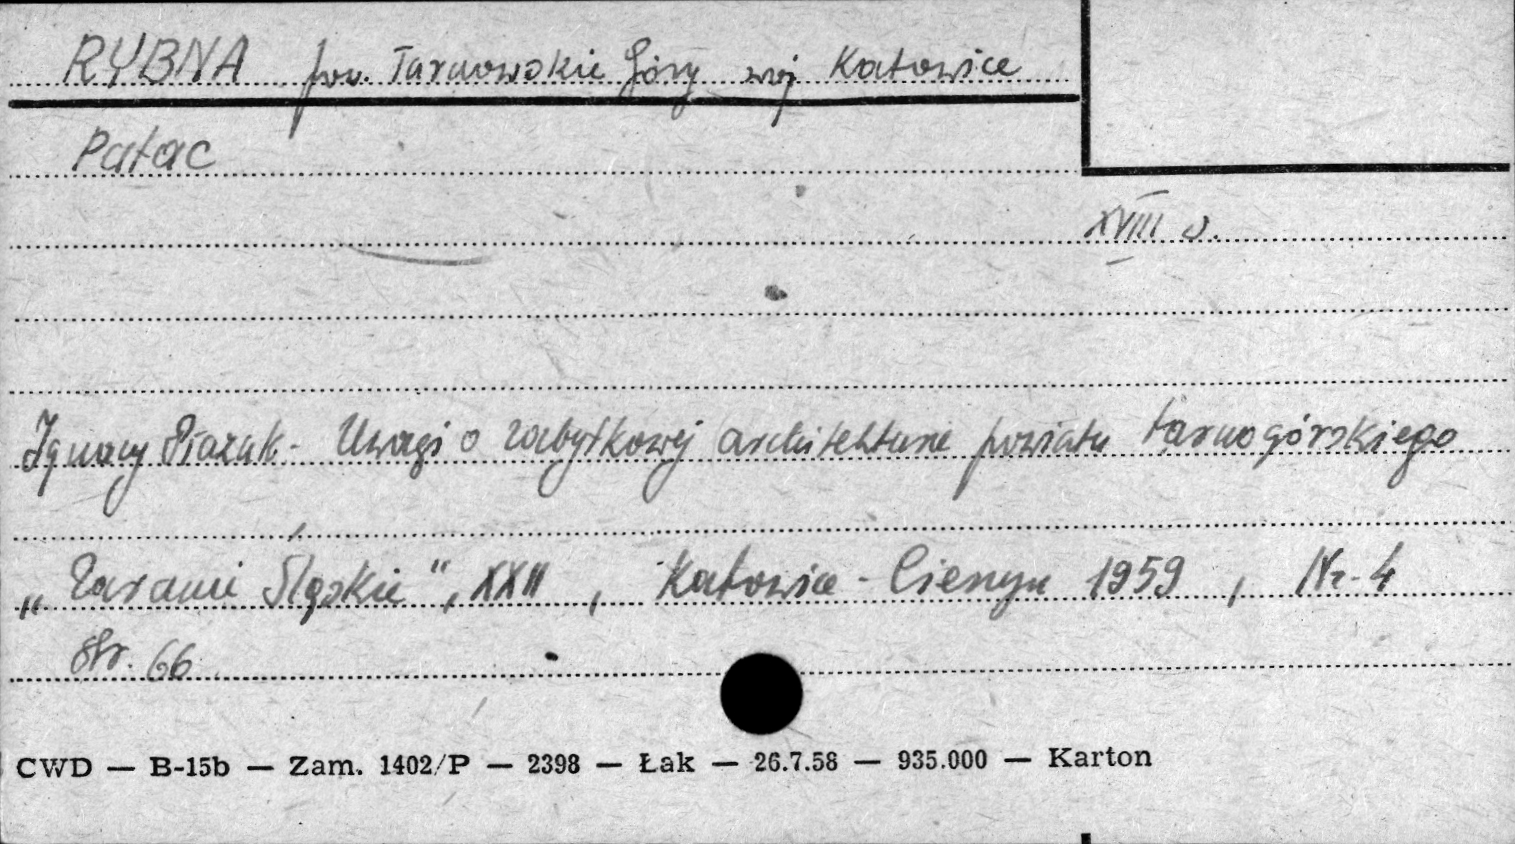 RYBNA pow. Tarnowskie Góry woj Katowice
Pałac
XVIII w.
Ignacy Płazak - Uwagi o zabytkowej architekturze powiatu tarnogórskiego
„Zaranie Śląskie", XXII, Katowice - Cieszyn 1959, Nr. 4
Str. 66
CWD — B-15b — Zam. 1402/P — 2398 — Łak — 26.7.58 — 935.000 — Karton